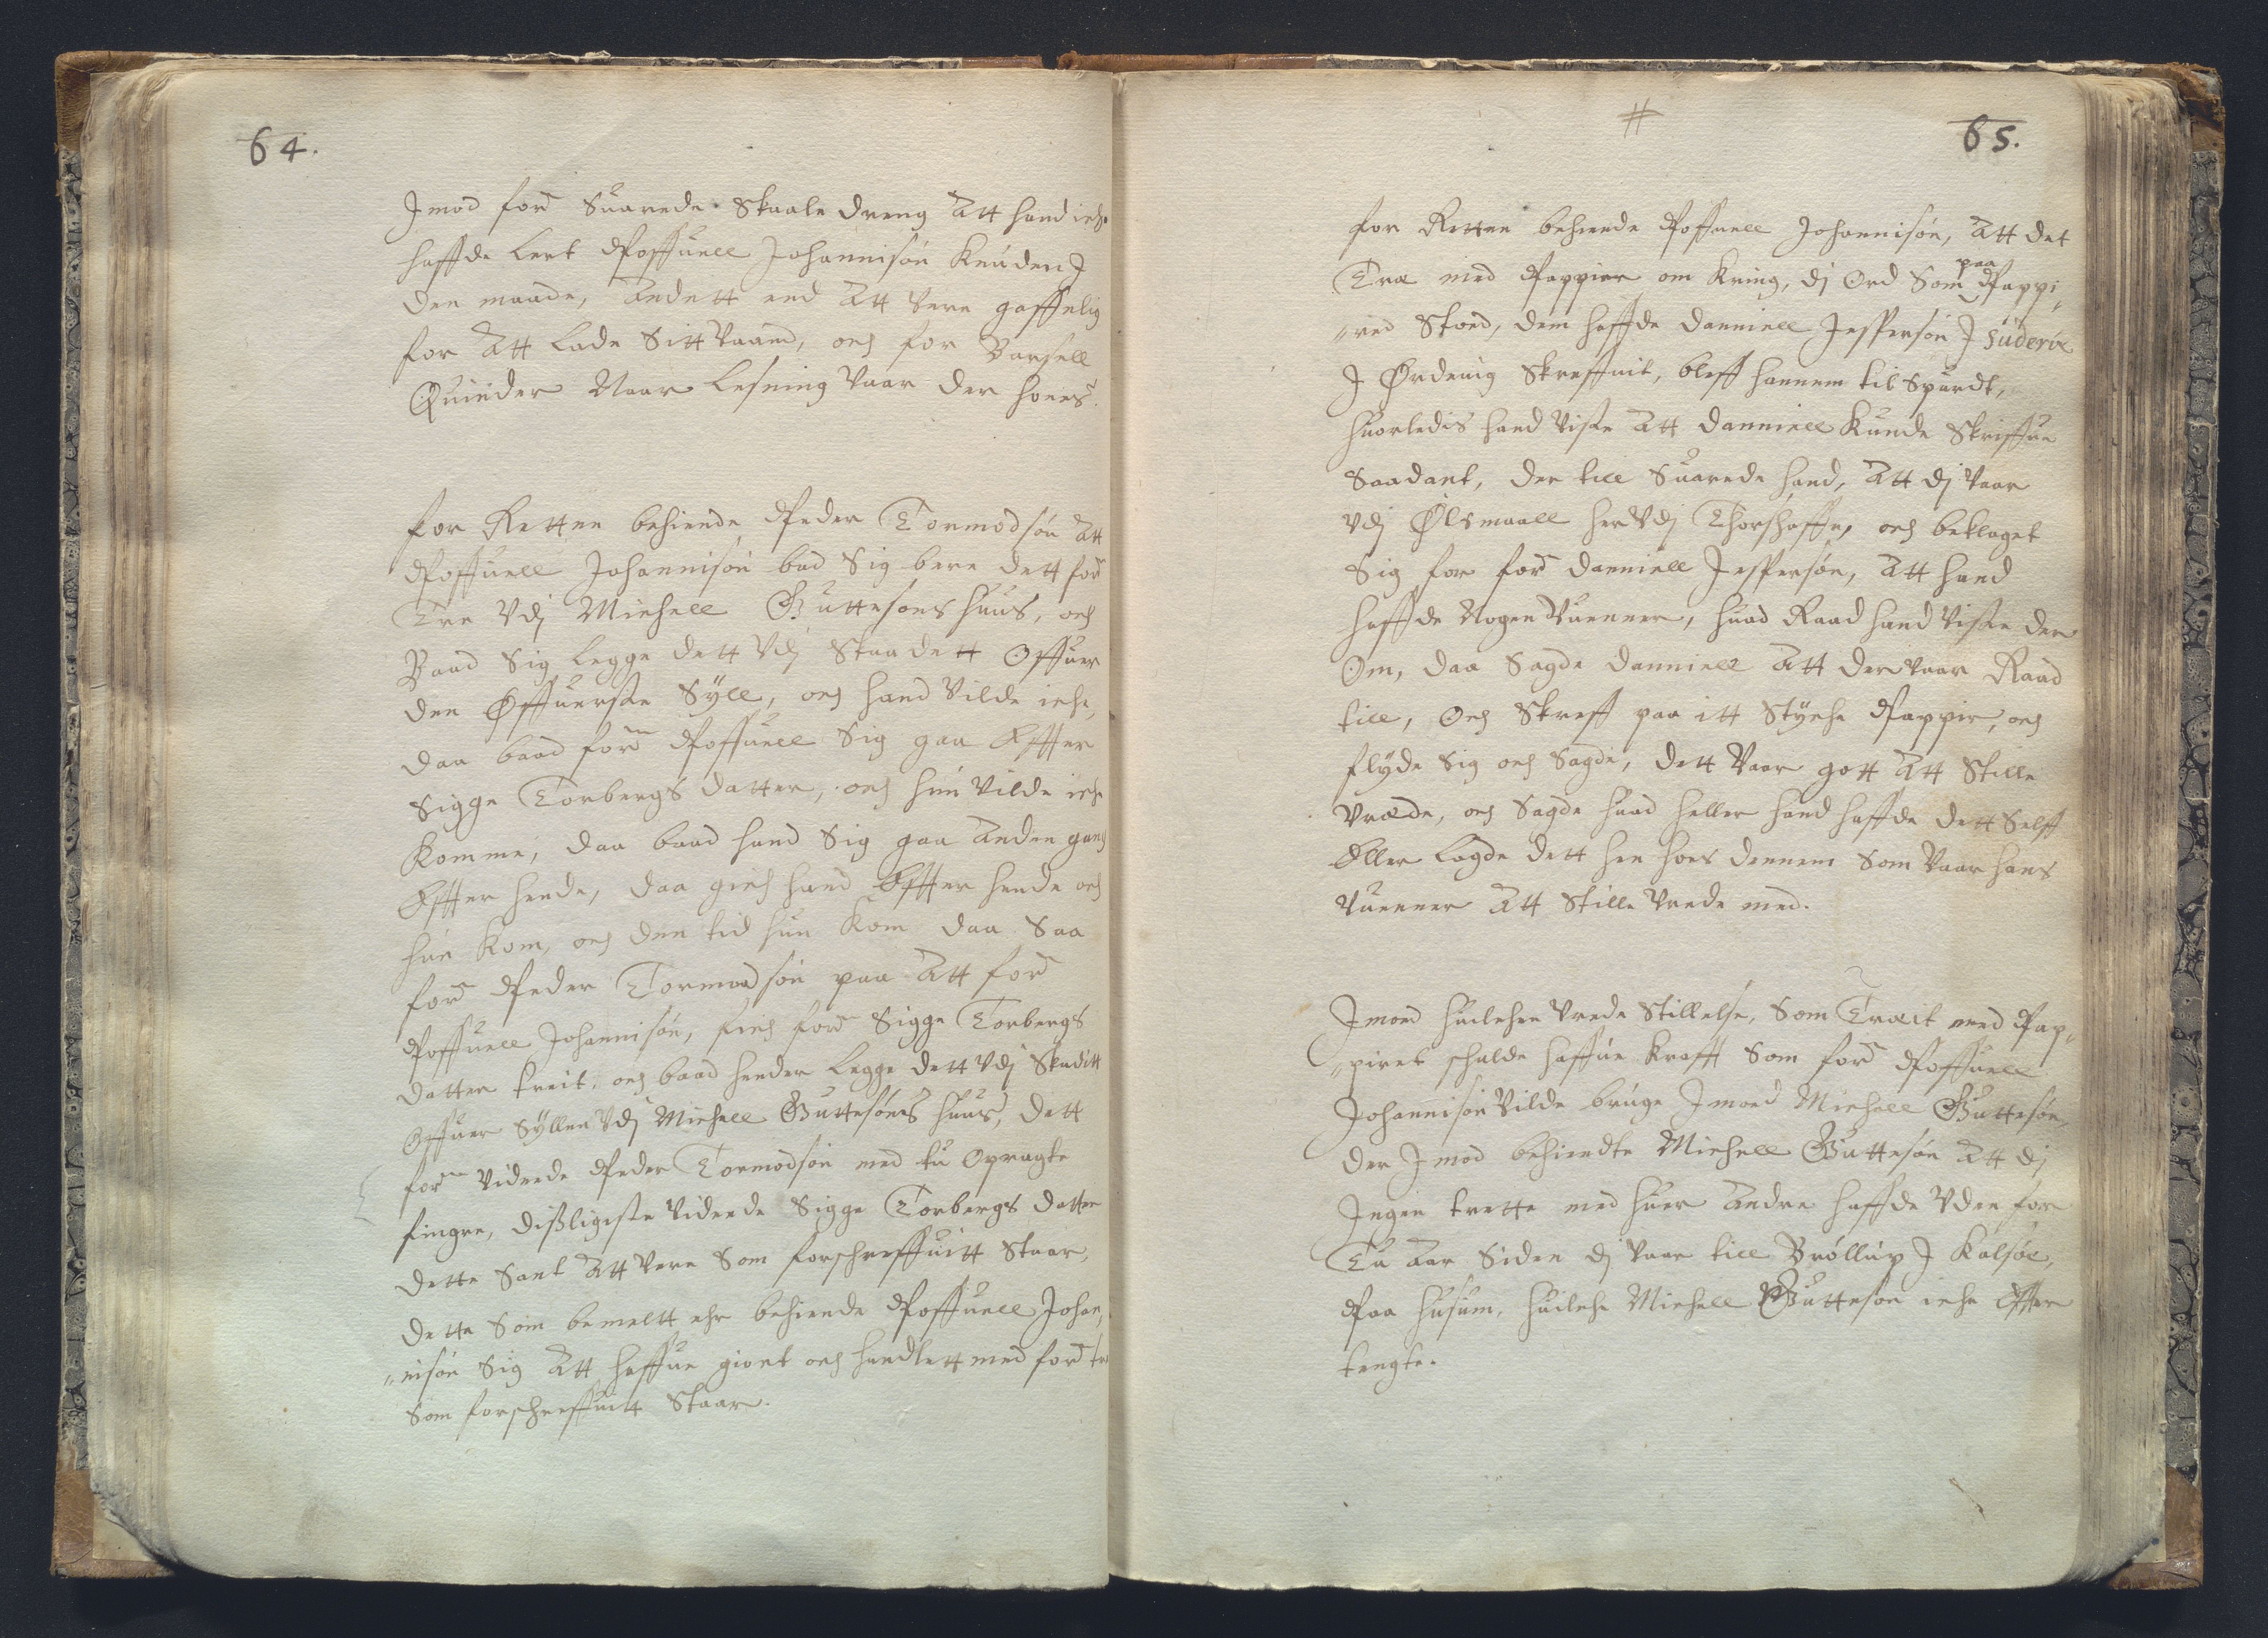 64.
Imod for: Suarede Skaale dreng Att hand iche
haffde Lert Poffuell Johannisøn Knuden I
den maade, Andett end Att vere gaffnlig
for Att Lade Sitt Vaand, och for Barsell
Quinder Naar Lesning Vaar der hoess.
for Retten behiende Peder Tormodsøn Att
Poffuell Johannisøn bad Sig bere dett for:
Tre Vdj Michell Guttesøns huus, och
Baad Sig Legge dett Vdj Staadett Offuer
den Øffuerste Syll, och hand Vilde iche,
daa baad for: Poffuell Sig gaa Effter
Sigge Torbergs datter, och hun Vilde iche
Komme, daa baad hand Sig gaa Anden gang
Effter hende, daa gich hand Effter hende och
hun Kom, och den tid hun Kom daa Saa
for: Peder Tormodsøn paa Att for:
Poffuell Johannisøn, fich for: Sigge Torbergs
datter treit, och baad hender Legge dett Vdj Staditt
Offuer Syllen Vdj Michell Guttesøns huus, dett
for: Vidnede Peder Tormodsøn med tu Opragte
fingre, disligeste Vidnede Sigge Torbergs datter
dette Sant Att Vere Som forschreffuitt Staar,
dette Som bemeltt ehr behiende Poffuell Johan,,
,,nisøn Sig Att haffue giort och handlett med for: tre
Som forschreffuitt Staar.
65.
for Retten behiende Poffuell Johannisøn, Att det
Træ med Pappier om Kring, dj Ord Som paa Pappi,,
,,red Stoed, dem haffde Danniell Jespersøn I Suderøe
I Ørdeuig Skreffuit, bleff hannem til Spurdt,
huorledis hand Viste Att Danniell Kunde Skriffue
Saadant, der till Suarede hand, Att dj Vaar
Vdj Ølsmaall her Vdj Thorshaffn, och beklaget
Sig for for: Danniell Jespersøn, Att hand
haffde Nogen Vuenner, huad Raad hand Viste der
Om, daa Sagde Danniell Att der Vaar Raad
till, Och Skreff paa itt Styche Pappir, och
flyde Sig och Sagde, dett Vaar gott Att Stille
Vræde, och Sagde huad heller hand haffde dett Selff
Eller Lagde dett hen hoes dennem Som Vaar hans
Vuenner Att Stille Vrede med.
Imoed huilchen Vrede Stillelse, Som Træit med Pap,,
,,piret schulde haffue Krafft Som for: Poffuell
Johannisøn Vilde bruge Imoed Michell Guttesøn,
der Imod behiendte Michell Guttesøn Att dj
Ingen trette med huer Andre haffde Vden for
Tu Aar Siden dj Vaar till Brøllup I Kalsøe,
Paa Husum, huilche Michell Guttesøn iche Effter
tengte.